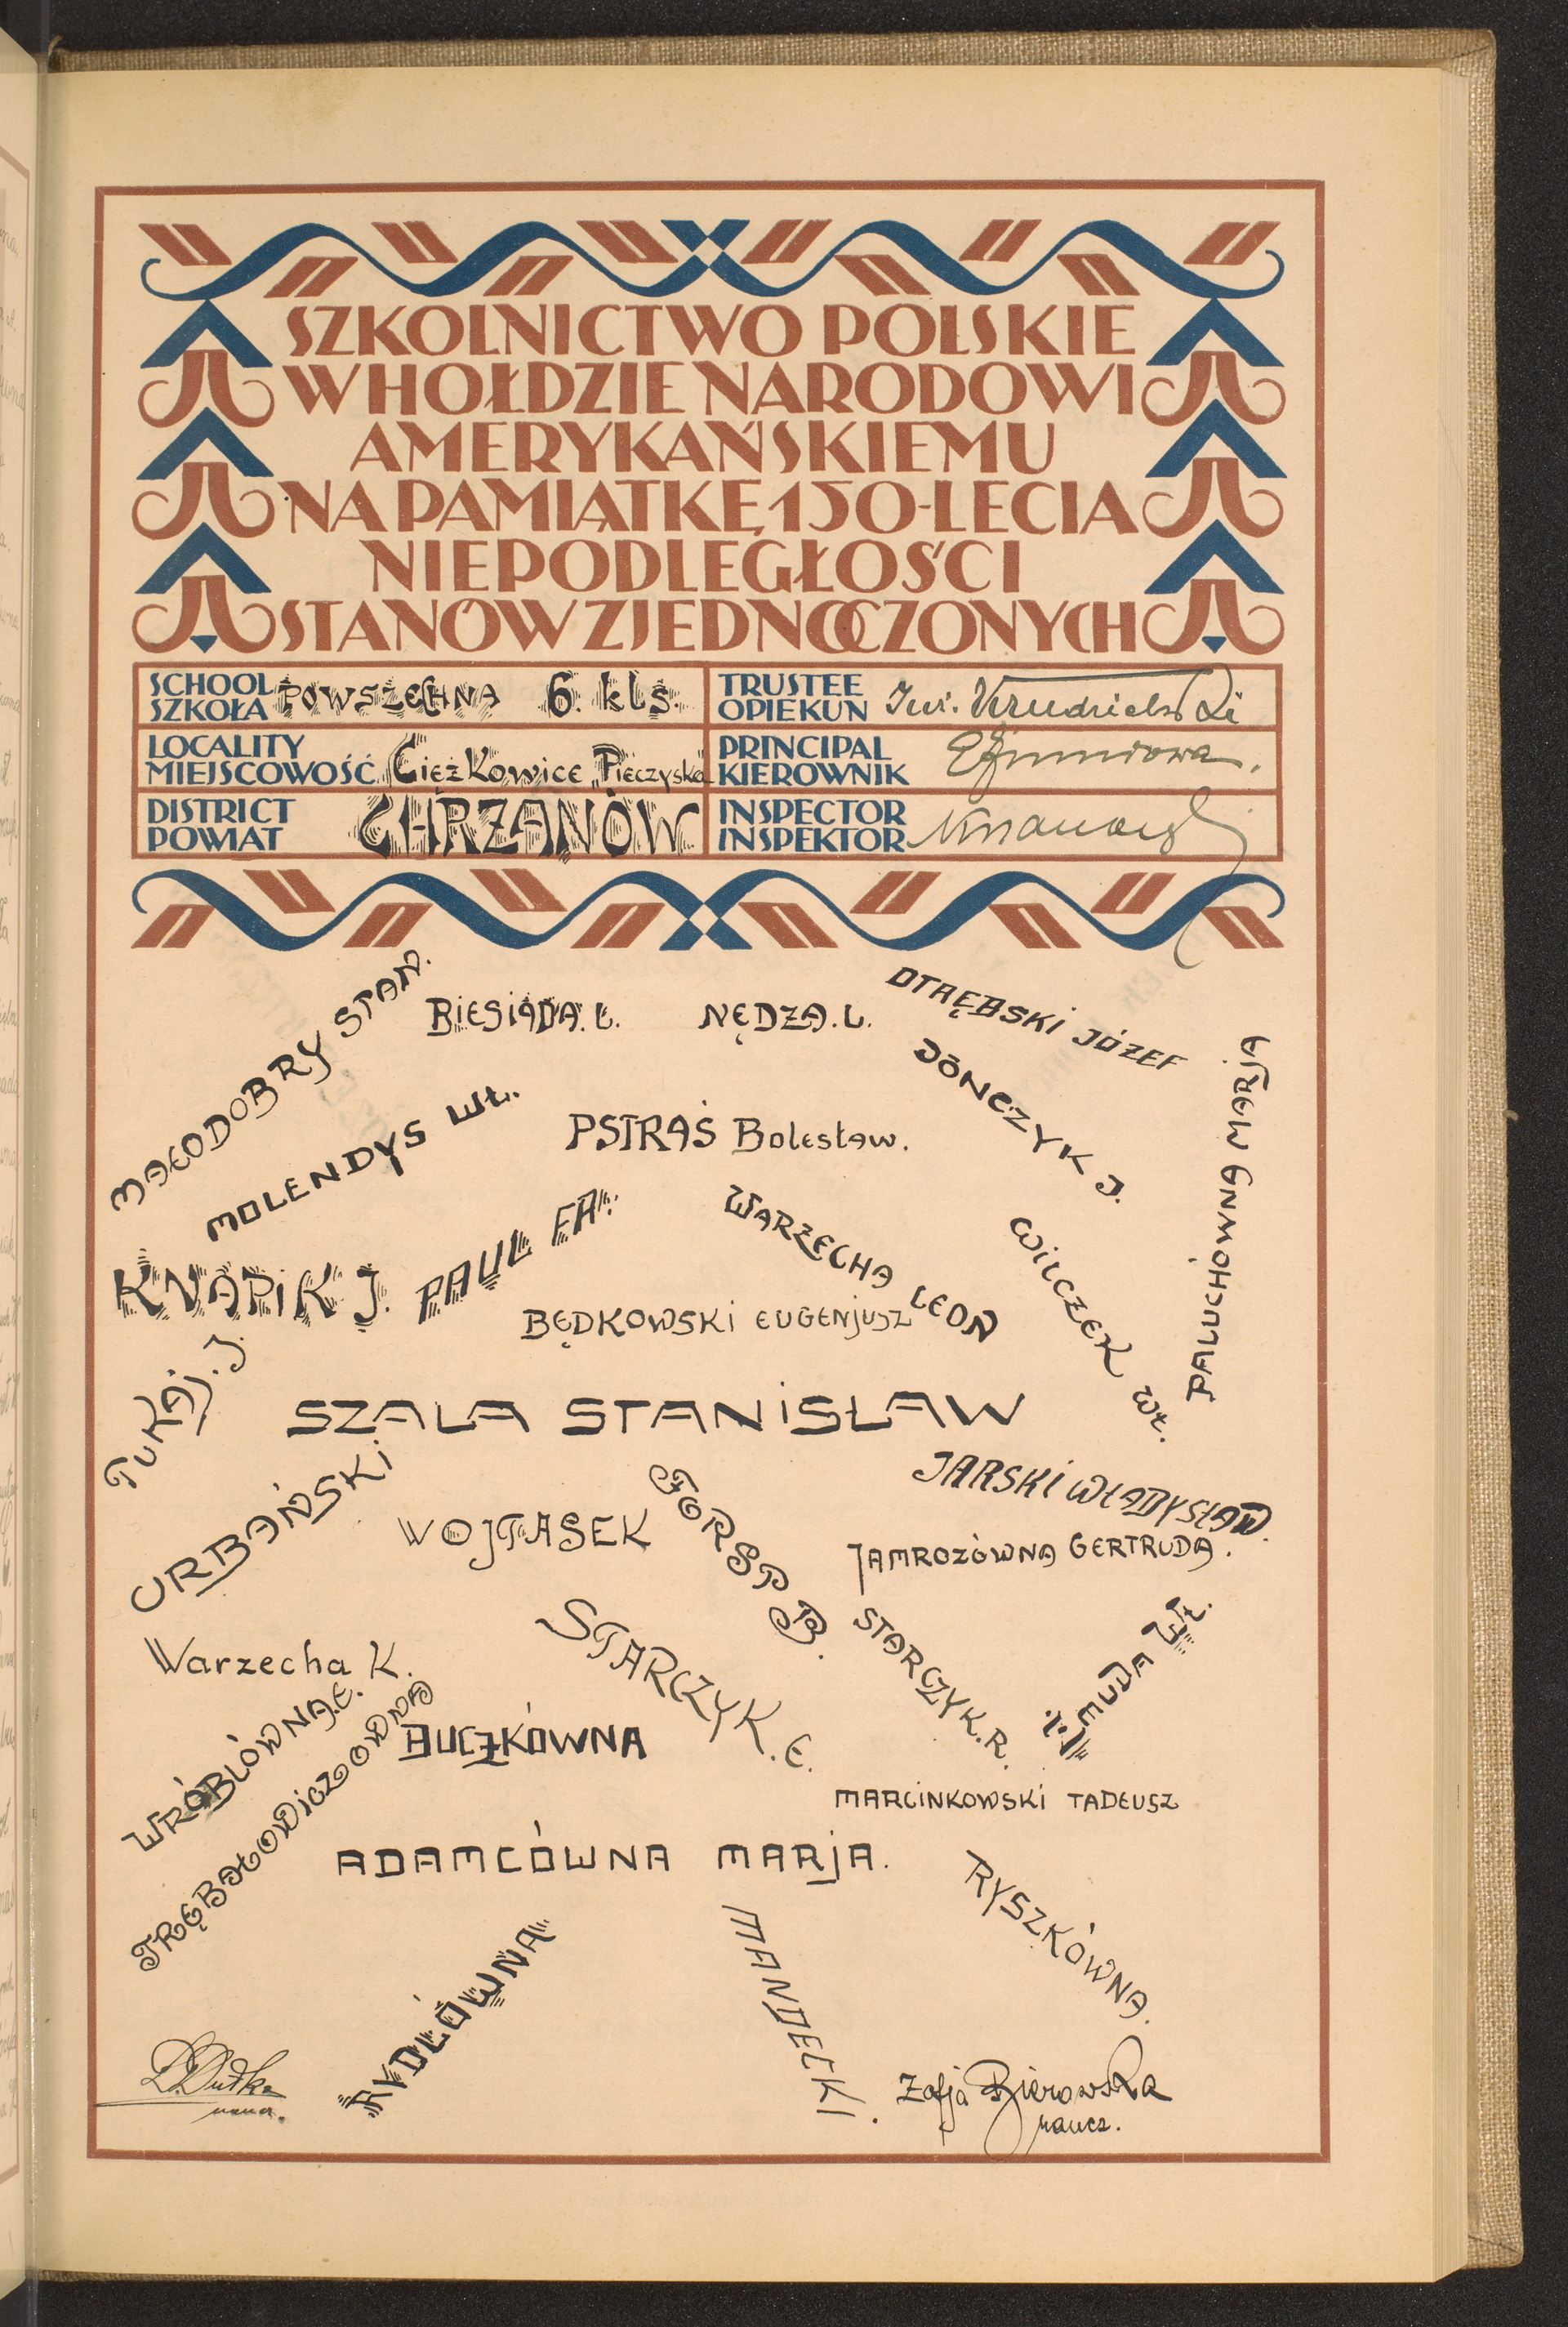 SZKOLNICTWO POLSKIE
W HOŁDZIE NARODOWI
AMERYKAŃSKIEMU
NA PAMIĄTKĘ 150-LECIA
NIEPODLEGŁOŚCI
STANÓW ZJEDNOCZONYCH
SCHOOL
SZKOŁA
POWSZECHNA 6. kls.
TRUSTEE
OPIEKUN
LOCALITY
MIEJSCOWOŚĆ
Ciężkowice „Pieczyska"
PRINCIPAL
KIEROWNIK
DISTRICT
POWIAT
CHRZANÓW
INSPECTOR
INSPEKTOR
MAŁODOBRY STAN.
BIESIADA. Ł.
NĘDZA. L.
OTRĘBSKI JÓZEF
MOLENDYS WŁ.
PSTRAŚ Bolesław.
DÓNCZYK J.
PALUCHÓWNA MARJA
KNAPIK J.
PAUL FA.
WARZECHA LEON
WILCZEK WŁ.
BĘDKOWSKI EUGENJUSZ
TUKAJ. J.
SZALA STANISŁAW
URBAŃSKI
WOJTASEK
GORST B.
JARSKI WŁADYSŁAW.
JAMROZÓWNA GERTRUDA.
Warzecha K.
STARCZYK. E.
STARCZYK. R.
WRÓBLÓWNA. E.
TRĘBAŁOWICZOWNA
BUCZKÓWNA
MARCINKOWSKI TADEUSZ
ADAMCÓWNA MARJA.
RYSZKÓWNA.
RYDLÓWNA
MANDECKI.
Dudka
naucz.
Zofja Bierowska
naucz.